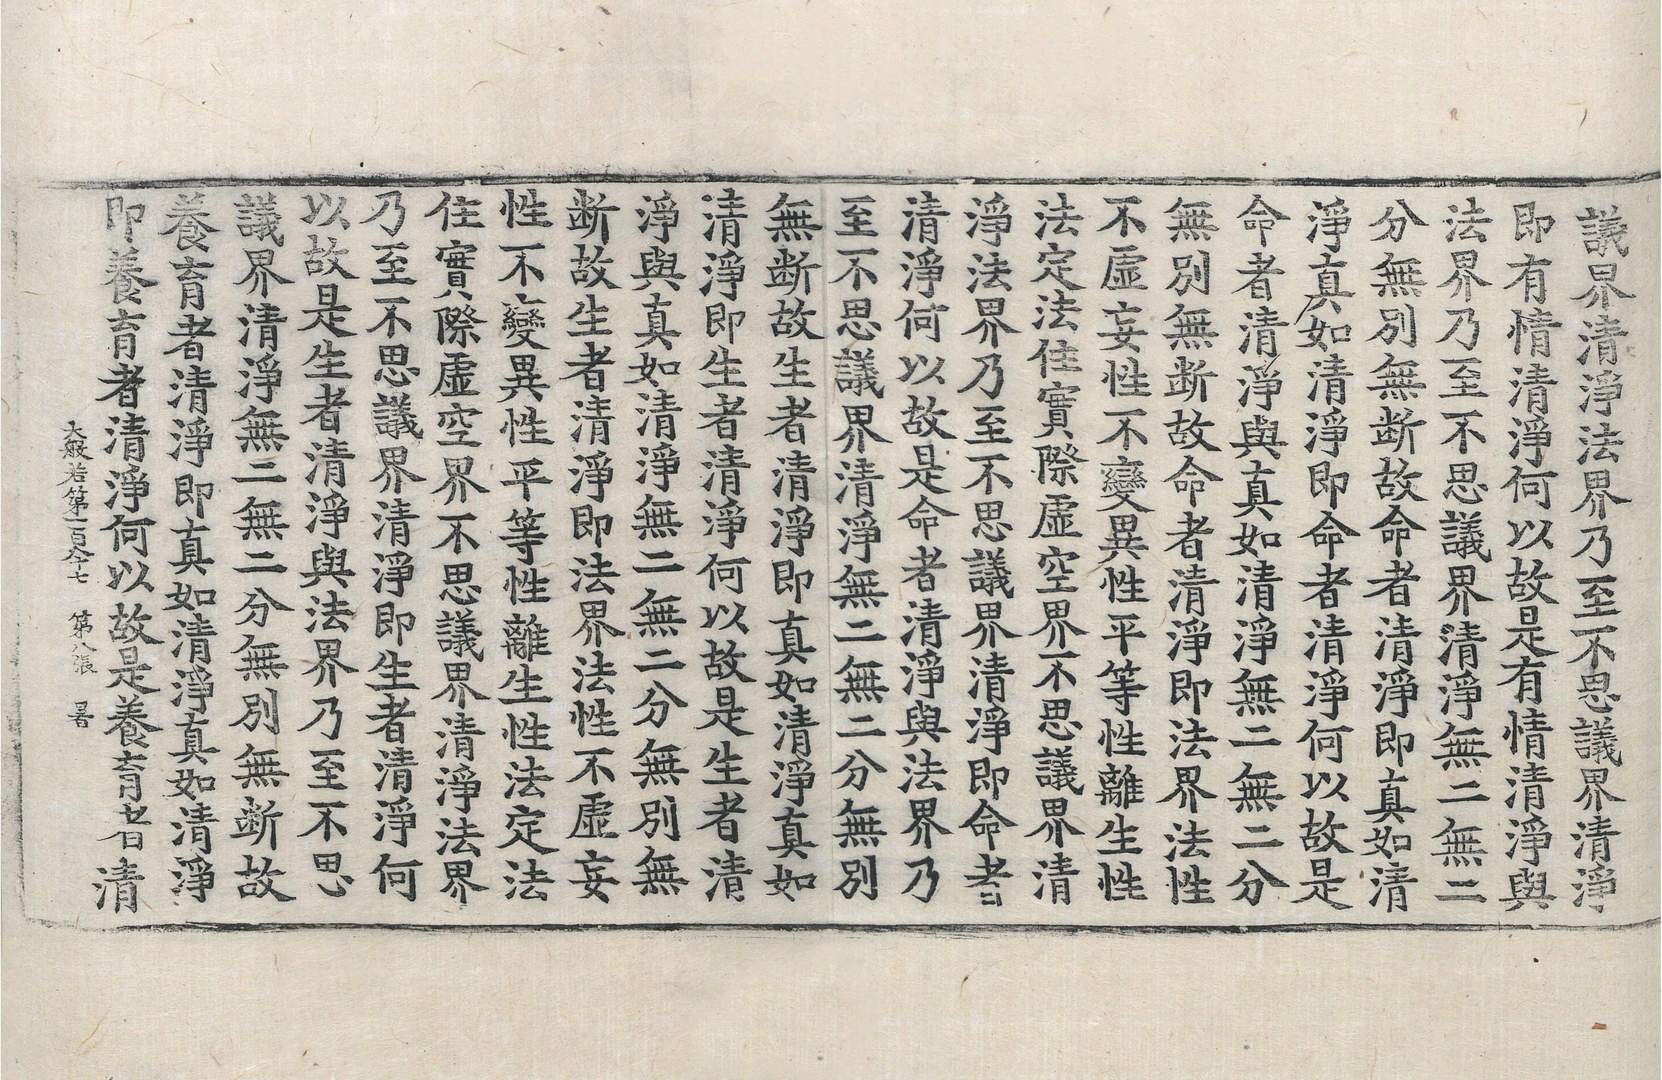 議界清淨法界乃至不思議界清淨
即有情清淨何以故是有情清淨與
法界乃至不思議界清淨無二無二
分無別無断故命者清淨即真如清
淨真如清淨即命者清淨何以故是
命者清淨與真如清淨無二無二分
無別無断故命者清淨即法界法性
不虛妄性不變異性平等性離生性
法定法住實際虛空界不思議界清
淨法界乃至不思議界清淨即命者
清淨何以故是命者清淨與法界乃
至不思議界清淨無二無二分無別
無断故生者清淨即真如清淨真如
清淨即生者清淨何以故是生者清
淨與真如清淨無二無二分無別無
断故生者清淨即法界法性不虛妄
性不變異性平等性離生性法定法
住實際虛空界不思議界清淨法界
乃至不思議界清淨即生者清淨何
以故是生者清淨與法界乃至不思
議界清淨無二無二分無別無断故
養育者清淨即真如清淨真如清淨
即養育者清淨何以故是養育者清
大般若第一百八十七 第八張 暑